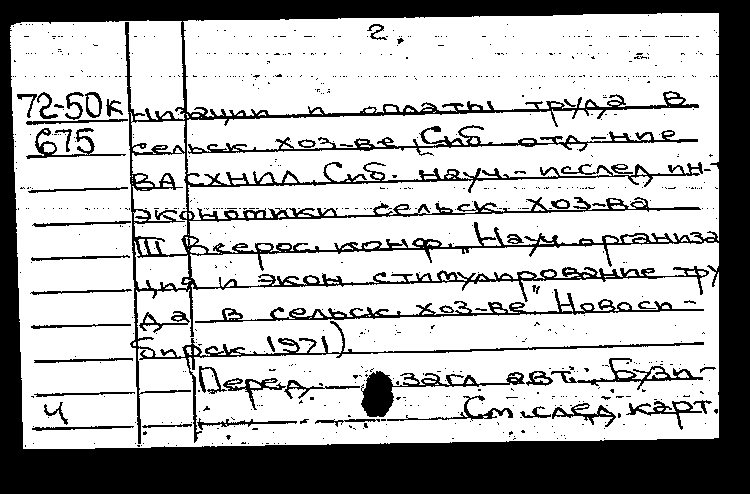 2.
72-50к низации и оплаты труда в
675 сельск. хоз-ве, Сиб. отд-ние
ВАСХНИЛ. Сиб. науч.-исслед. ин-т
экономики сельск. хоз-ва
III Всерос. конф. "Науч. организа
ция и экон. стимулирование тру
да в сельск. хоз-ве" Новоси-
бирск. 1971).
Перед загл. авт.: Бузи-
ч См. след. карт.